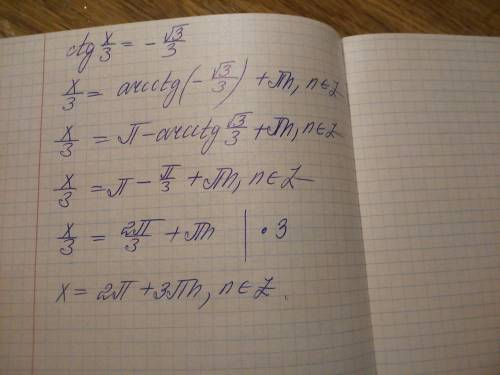 ctg x/3 = - √3/3
x/3 = arcctg(- √3/3) + πn, n∈Z
x/3 = π - arcctg √3/3 + πn, n∈Z
x/3 = π - π/3 + πn, n∈Z
x/3 = 2π/3 + πn | · 3
x = 2π + 3πn, n∈Z.